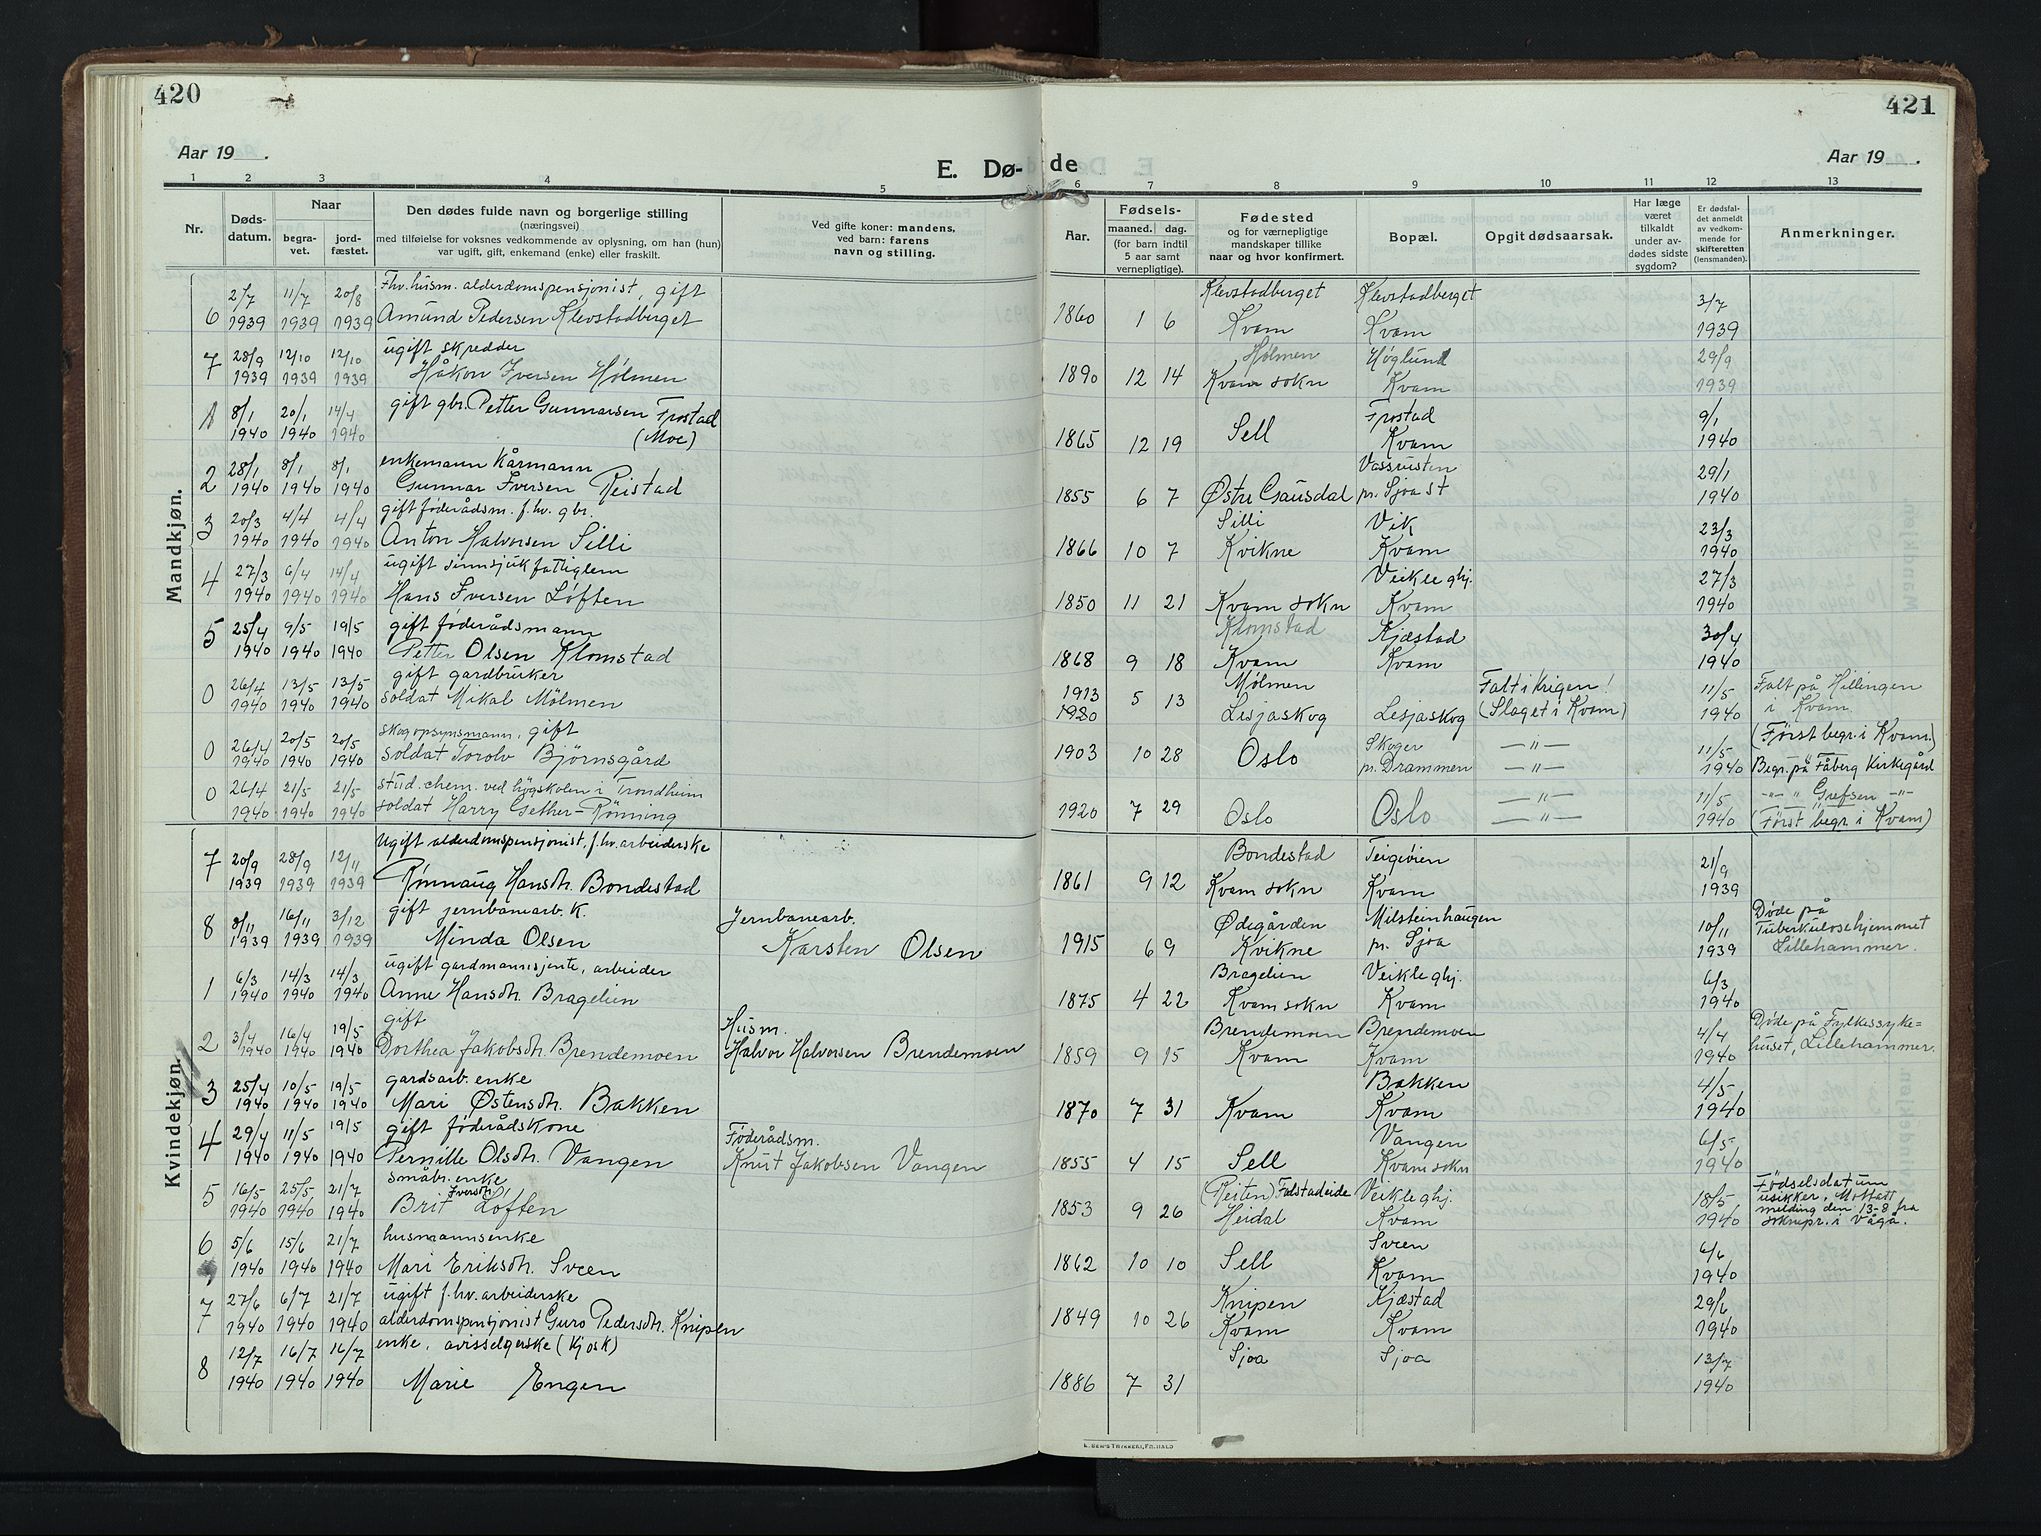 420
421
Aar 19 .
E. Dø-
de
Aar 19 .
1 2 3 4 5 6 7 8 9 10 11 12 13
Nr.
Døds-
datum.
Naar
begra-
vet.
jord-
fæstet.
Den dødes fulde navn og borgerlige stilling
(næringsvei)
med tilføielse for voksnes vedkommende av oplysning, om han (hun)
var ugift, gift, enkemand (enke) eller fraskilt.
Ved gifte koner: mandens,
ved barn: farens
navn og stilling.
Aar.
Fødsels-
maaned. dag.
(for barn indtil
5 aar samt
vernepligtige).
Fødested
og for værnepligtige
mandskaper tillike
naar og hvor konfirmert.
Bopæl.
Opgit dødsaarsak.
Har læge
været
tilkaldt
under av-
dødes sidste
sygdom?
Er dødsfal-
det anmeldt
av vedkom-
mende for
skifteretten
(lensmanden).
Anmerkninger.
Mandkjøn.
2/7 11/7 20/8 Fhv. husm. alderdomspensjonist, gift Klevstadberget Klevstadberget 3/7
6 1939 1939 1939 Amund Pedersen Klevstadberget 1860 1 6 Kvam Kvam 1939
28/9 12/10 12/10 ugift skredder Hølmen Høglund 29/9
7 1939 1939 1939 Håkon Iversen Hølmen 1890 12 14 Kvam sokn Kvam 1939
1 8/1 20/1 14/4 gift gbr. Petter Gunnarsen Frostad Frostad 9/1
1940 1940 1940 (Moe) 1865 12 19 Sell Kvam 1940
28/1 8/1 8/1 enkemann kårmann Vassrusten 29/1
2 1940 1940 1940 Gunnar Iversen Reistad 1855 6 7 Østre Gausdal pr. Sjoa st 1940
20/3 4/4 4/4 gift føderådsm. f.hv. gbr. Silli Vik 23/3
3 1940 1940 1940 Anton Halvorsen Silli 1866 10 7 Kvikne Kvam 1940
27/3 6/4 14/4 ugift sinnsjuk fattiglem Veikle ghj. 27/3
4 1940 1940 1940 Hans Iversen Løften 1850 11 21 Kvam sokn Kvam 1940
25/4 9/5 19/5 gift føderådsmann Klomstad Kjæstad 30/4
5 1940 1940 1940 Petter Olsen Klomstad 1868 9 18 Kvam Kvam 1940
26/4 13/5 13/5 gift gardbruker 1913 Mølmen Falt i krigen! 11/5 Falt på Hillingen
0 1940 1940 1940 soldat Mikal Mölmen 1920 5 13 Lesjaskog Lesjaskog (Slaget i Kvam) 1940 i Kvam.
26/4 20/5 20/5 skogopsynsmann, gift Skoger — " — 11/5 (Først begr. i Kvam.)
0 1940 1940 1940 soldat Torolv Björnsgård 1903 10 28 Oslo pr. Drammen — " — 1940 Begr. på Fåberg Kirkegård
26/4 21/5 21/5 stud. chem. ved högskolen i Trondheim — " — 11/5 -"- " Grefsen -"-
0 1940 1940 1940 soldat Harry Gether-Rönning 1920 7 29 Oslo Oslo — " — 1940 (Først begr. i Kvam)
Kvindekjøn.
7 20/9 28/9 12/11 Ugift alderdomspensjonist, f.hv. arbeiderske Bondestad Teigøien 21/9
1939 1939 1939 Rønnaug Hansdr. Bondestad 1861 9 12 Kvam sokn Kvam 1939
8/11 16/11 3/12 gift jernbanearb. k. Jernbanearb. Ødegården Milsteinhaugen 10/11 Døde på
8 1939 1939 1939 Minda Olsen Karsten Olsen 1915 6 9 Kvikne pr. Sjoa 1939 Tuberkulosehjemmet
Lillehammer.
6/3 14/3 14/3 ugift gardmannsjente, arbeider Bragelien Veikle ghj. 6/3
1 1940 1940 1940 Anne Hansdr. Bragelien 1875 4 22 Kvam sokn Kvam 1940
3/4 16/4 19/5 gift Husm. Brendemoen Brendemoen 4/4 Døde på Fylkessyke=
2 1940 1940 1940 Dorthea Jakobsdr. Brendemoen Halvor Halvorsen Brendemoen 1859 9 15 Kvam Kvam 1940 huset, Lillehammer.
25/4 10/5 19/5 gardsarb. enke Bakken 4/5
3 1940 1940 1940 Mari Østensdr. Bakken 1870 7 31 Kvam Kvam 1940
29/4 11/5 19/5 gift føderådskone Føderådsm. Vangen 6/5
4 1940 1940 1940 Pernille Olsdr. Vangen Knut Jakobsen Vangen 1855 4 15 Sell Kvam sokn 1940
16/5 25/5 21/7 småbr. enke (Reiten) Falstadeide Veikle ghj. 18/5 Fødselsdatum
5 1940 1940 1940 Brit Iversdr. Løften 1853 9 26 Heidal Kvam 1940 usikker. Mottatt
melding den 13-8 fra
soknepr. i Vågå.
6 5/6 15/6 21/7 husmannsenke Sveen 6/6
1940 1940 1940 Mari Eriksdr. Sveen 1862 10 10 Sell Kvam 1940
27/6 6/7 21/7 ugift f.hv. arbeiderske Knipen Kjæstad 29/6
7 1940 1940 1940 alderdomspensjonist Guro Pedersdr. Knipen 1849 10 26 Kvam Kvam 1940
12/7 16/7 16/7 enke, avisselgerske (kjosk) Sjoa Sjoa 13/7
8 1940 1940 1940 Marie Engen 1886 7 31 1940